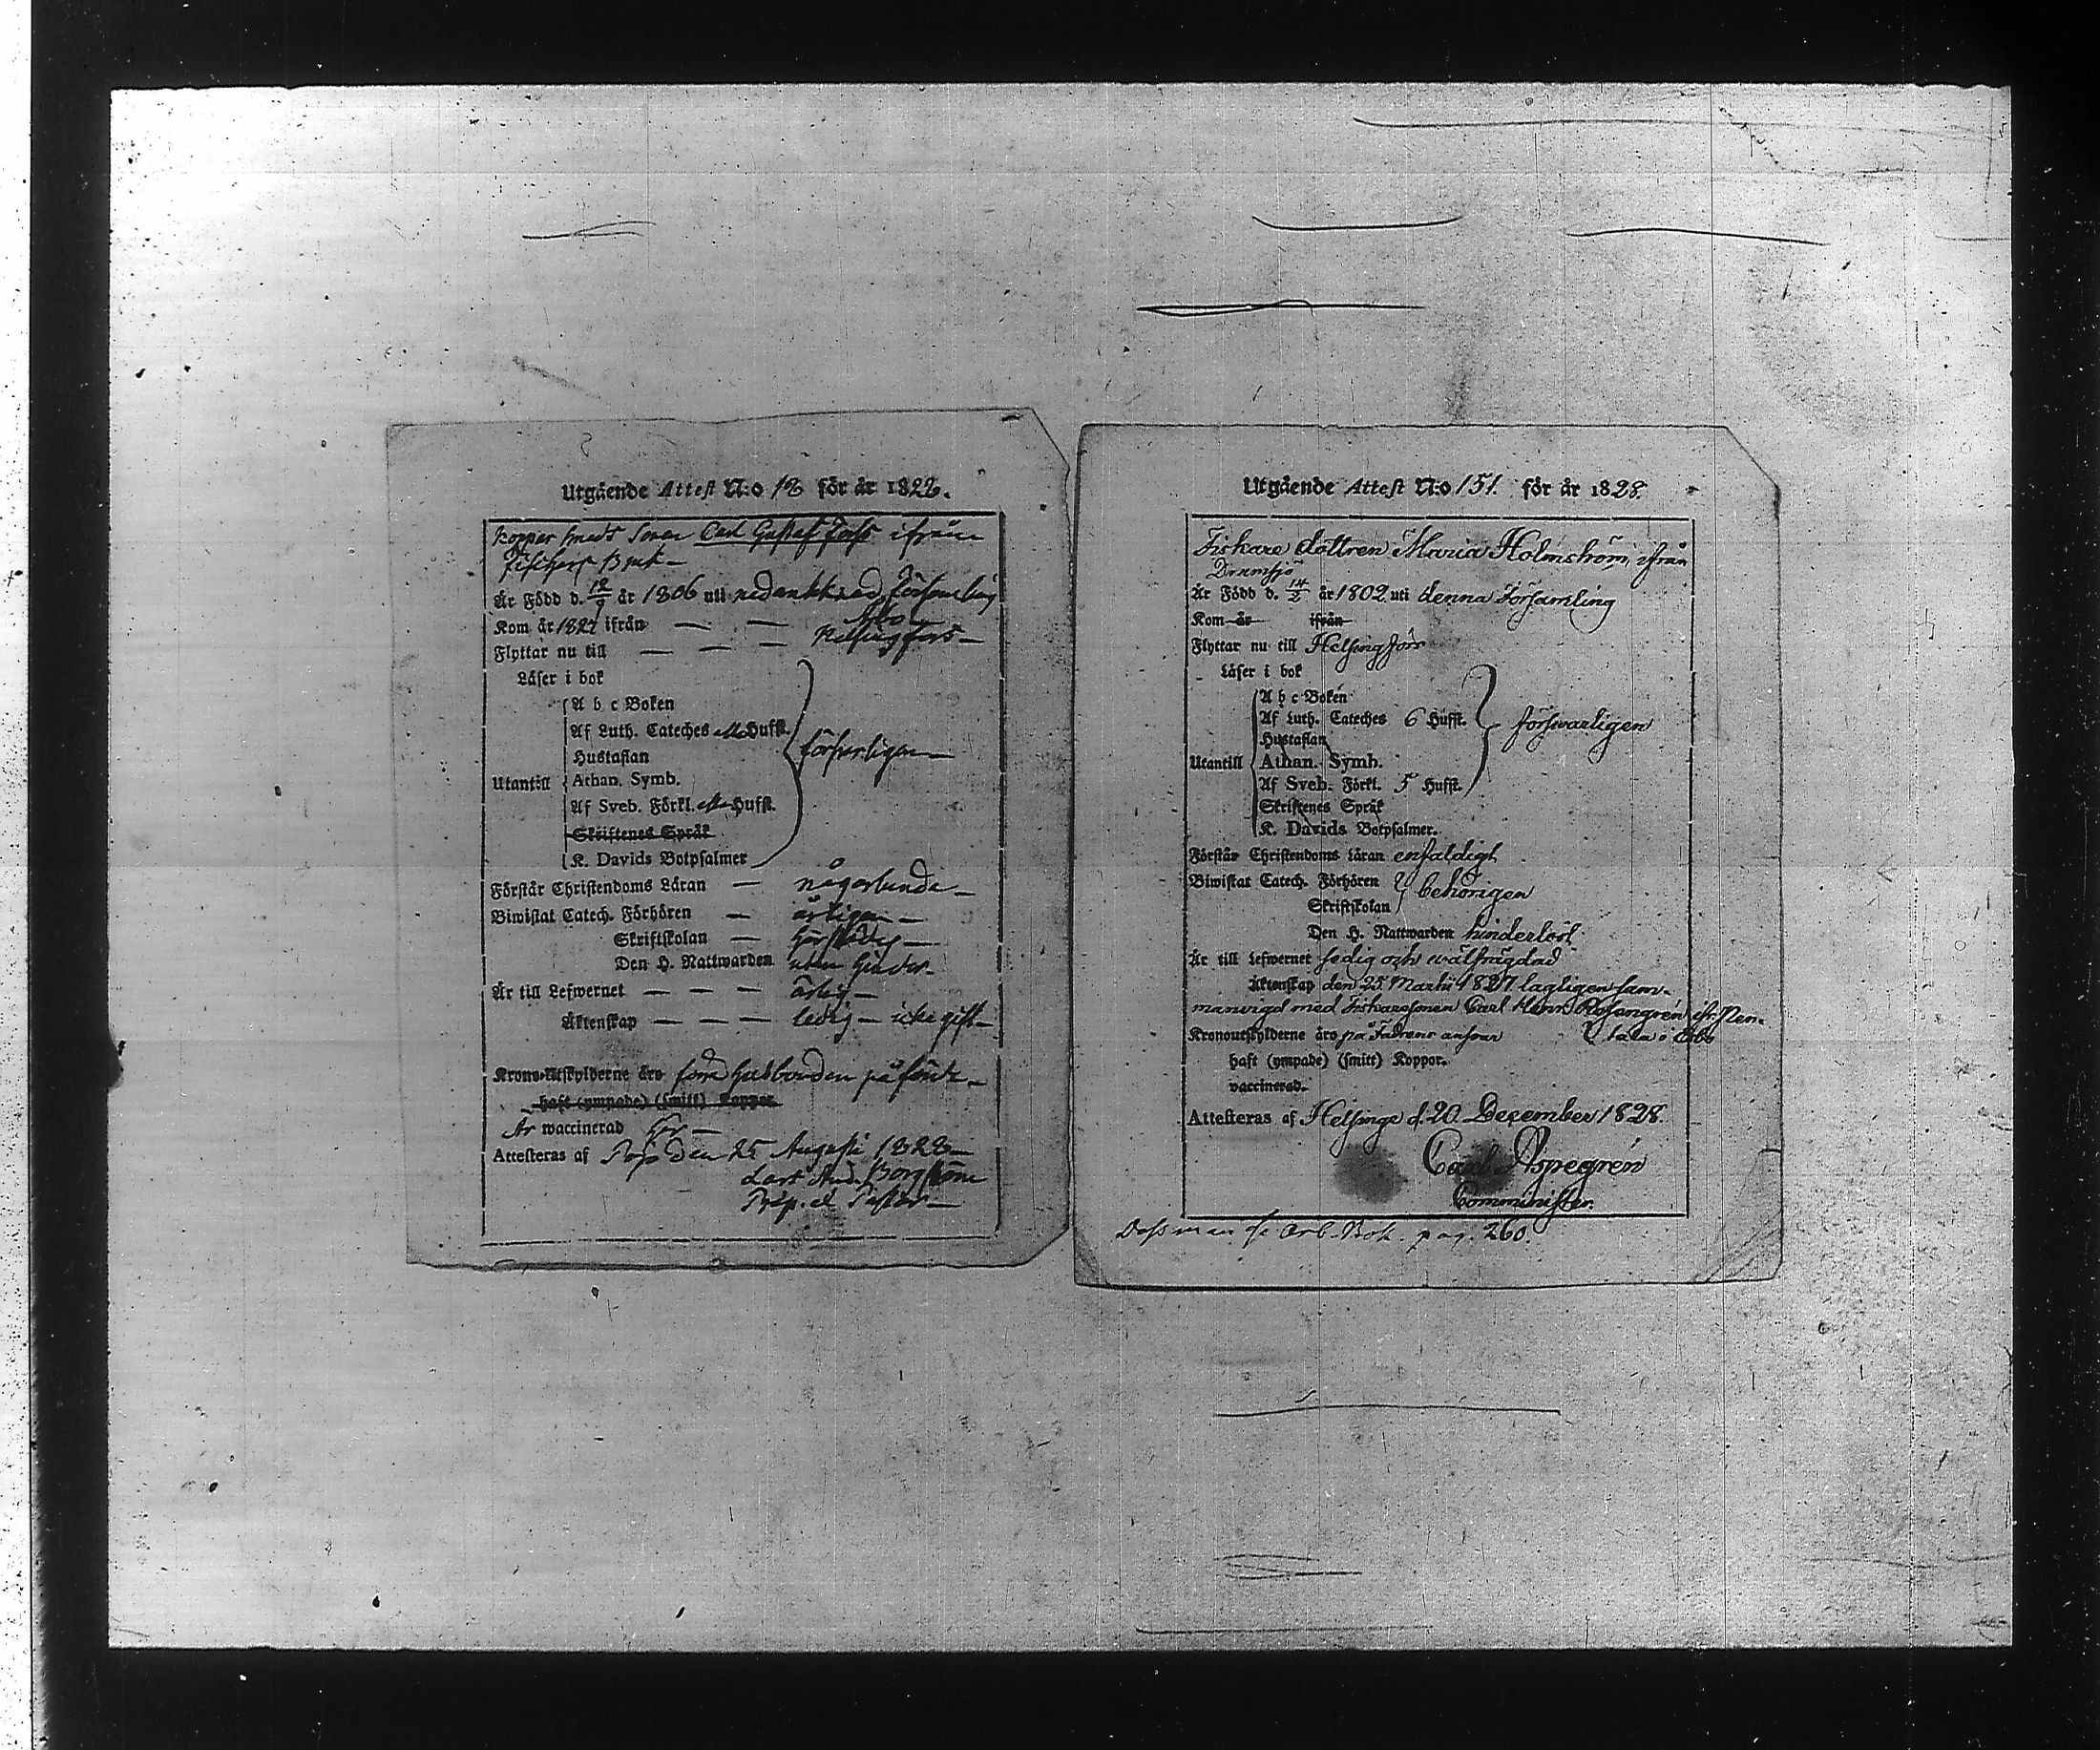 Utgående Attest N:o 12 för år 1828.
Koppar smeds Sonen Carl Gustaf Forss ifrån
Fiskars Bruk
Är Född d. 12/9 år 1806 uti nedanteknad Församling
Kom år 1827 ifrån — — Åbo
Flyttar nu till — — — Helsingfors —
Läser i bok
A b c Boken
Af Luth. Cateches alla Hufst.
Hustaflan
försvarligen
Utantill
Athan. Symb.
Af Sveb. Förkl. alla Hufst.
Skriftenes Språk
K. Davids Botpsalmer
Förstår Christendoms Läran — någorlunda —
Biwistat Catech. Förhören — årligen —
Skriftskolan —
Den H. Nattwarden utan hinder —
Är till Lefwernet — — — ärlig —
Äktenskap — — — ledig — icke gift —
Krono-Utskylderne äro förra Husbonden påförde —
haft (ympade) (smitt) Koppor
Är waccinerad
Attesteras af Pojo den 25 Augusti 1828 —
Lars And. Borgström
Præp. et Pastor —
Utgående Attest N:o 151. för år 1828.
Fiskare dottren Maria Holmström, ifrån
Drumsjö
Är Född d. 14/2 år 1802 uti denna Församling
Kom år ifrån
Flyttar nu till Helsingfors
Läser i bok
A b c Boken
Af Luth. Cateches 6 Hufst.
försvarligen
Hustaflan
Utantill
Athan. Symb.
Af Sveb. Förkl. 5 Hufst.
Skriftenes Språk
K. Davids Botpsalmer.
Förstår Christendoms Läran enfaldigt
Biwistat Catech. Förhören
behörigen
Skriftskolan
Den H. Nattwarden hinderlöst
Är till Lefwernet sedig och wälfrägdad
Äktenskap den 25 Martii 1827 lagligen sam-
manvigd med Fiskaresonen Carl Henr. Rosengrén ifr.
Kronoutskylderne äro på Fadrens answar
haft (ympade) (smitt) Koppor.
vaccinerad.
Attesteras af Helsinge d. 20. December 1828.
Carl Aspegrén
Comminister.
Arb. Bok. pag. 260.